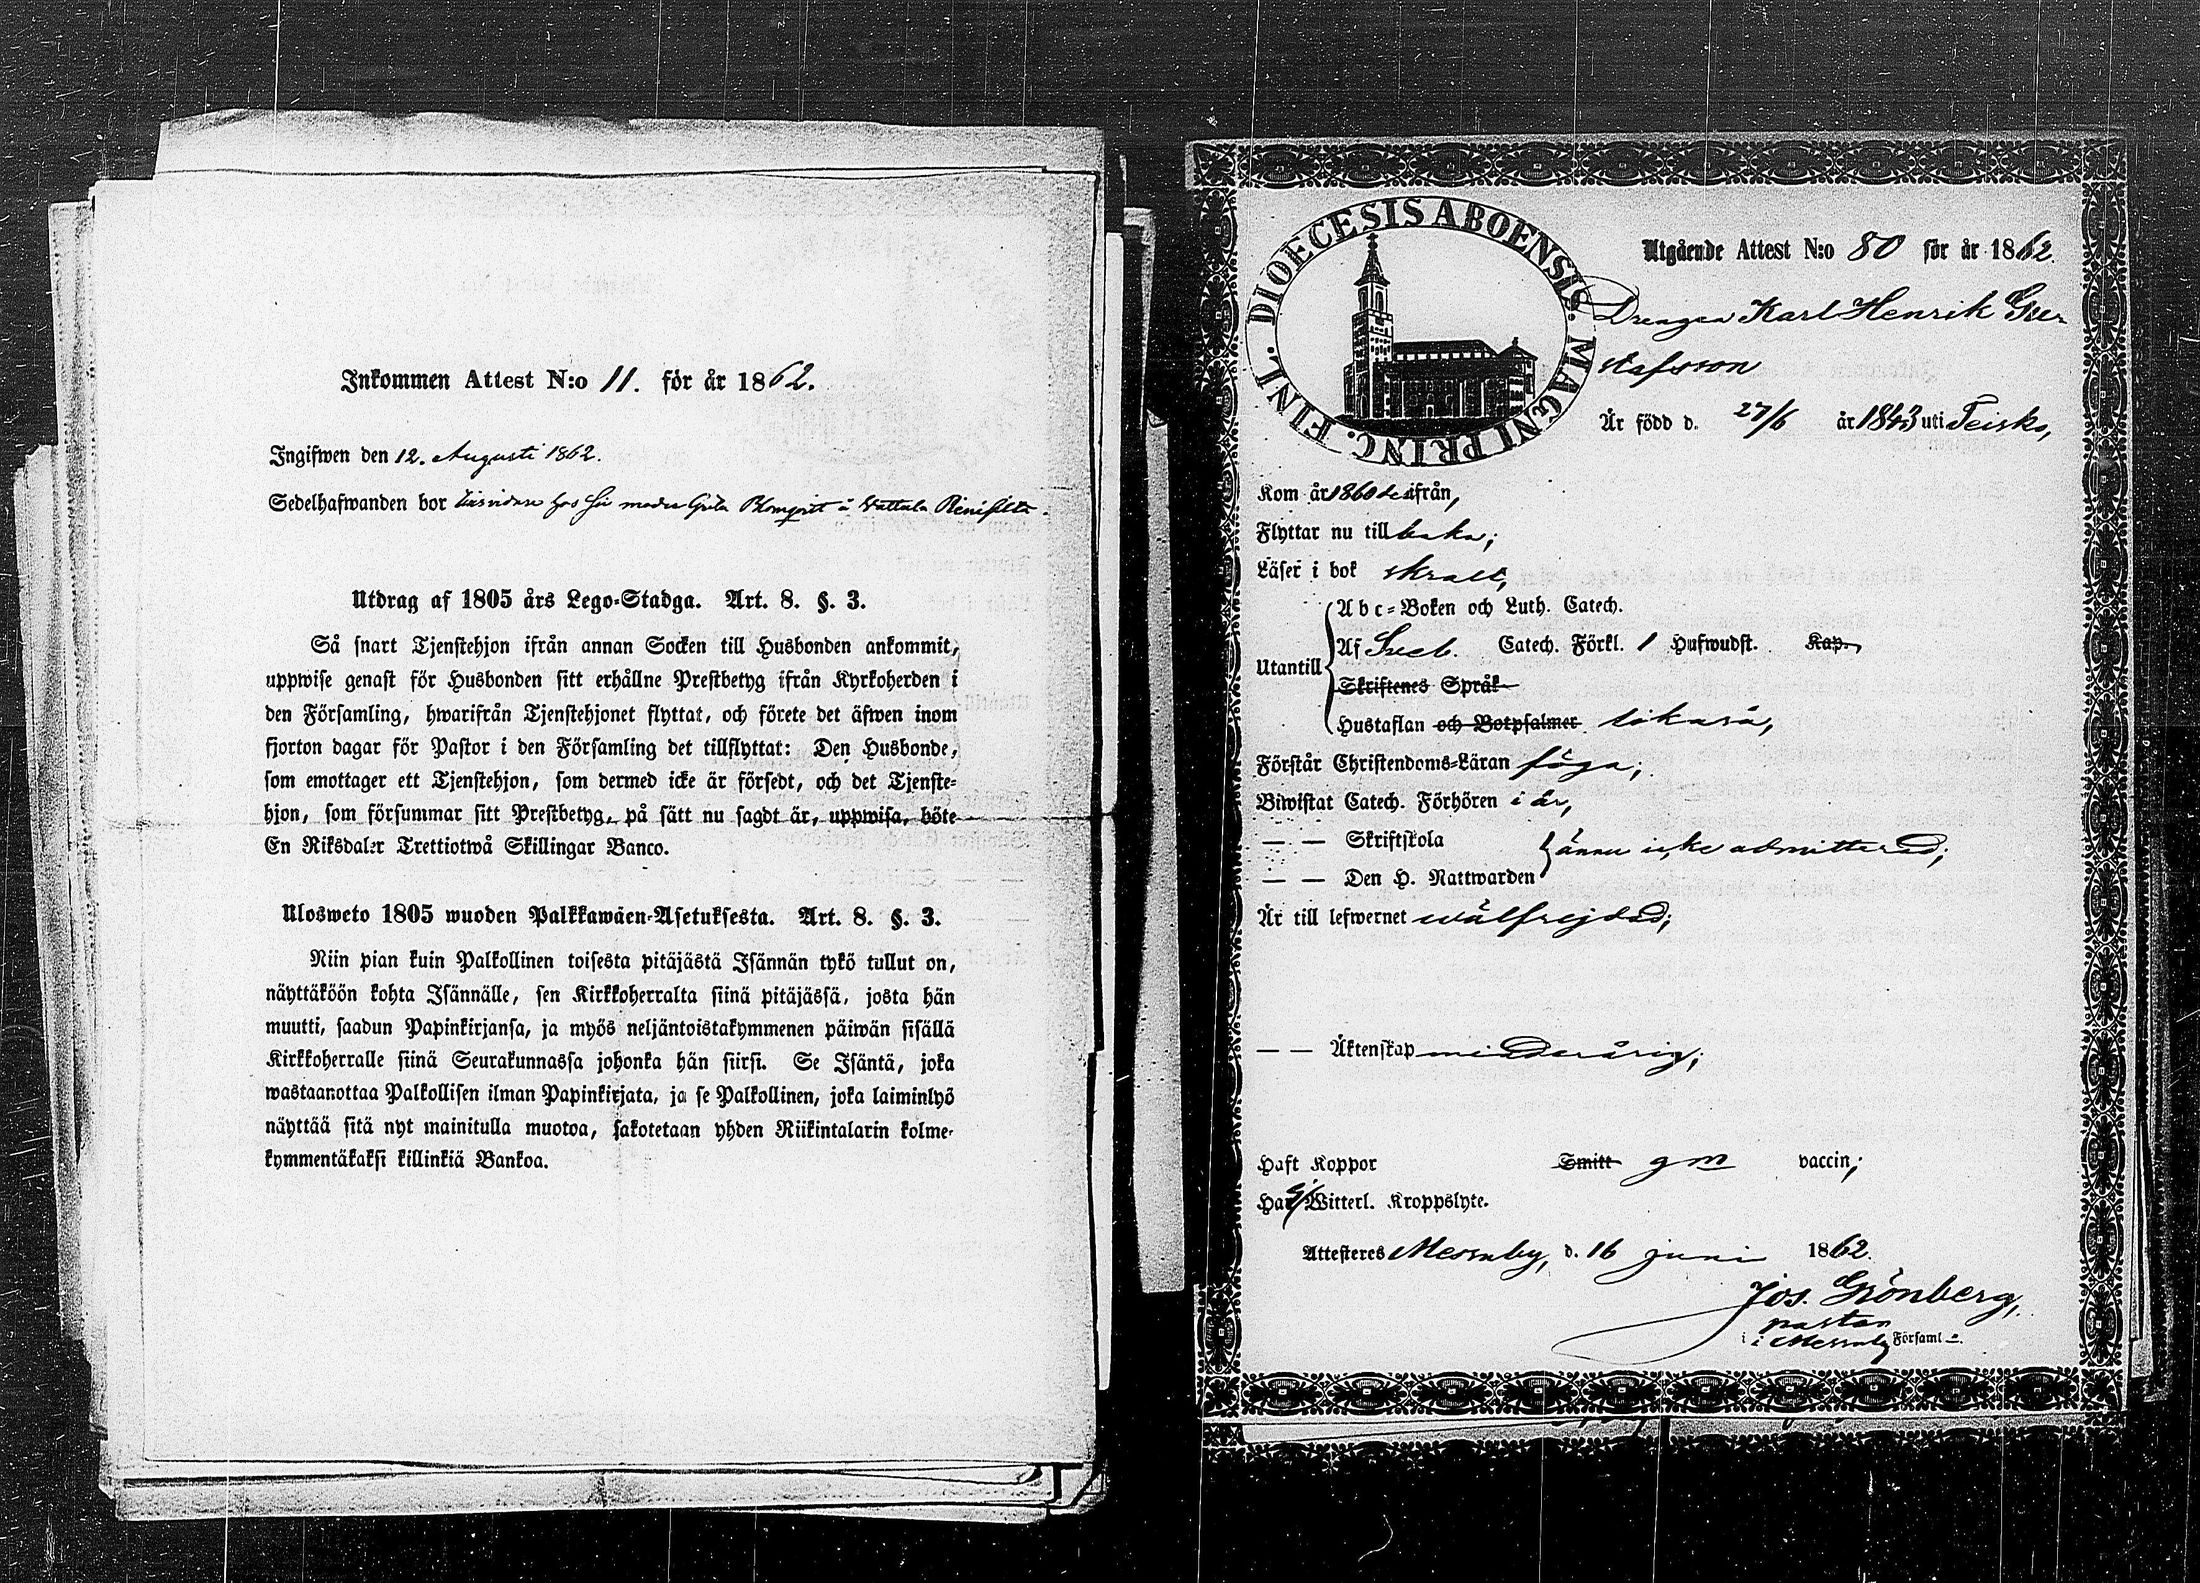 Inkommen Attest N:o 11. för år 1862.
Ingifwen den 12. Augusti 1862.
Sedelhafwanden bor hos moder Greta Blomqvist å Wattula
Utdrag af 1805 års Lego-Stadga. Art. 8. §. 3.
Så snart Tjenstehjon ifrån annan Socken till Husbonden ankommit,
uppwise genast för Husbonden sitt erhållne Prestbetyg ifrån Kyrkoherden i
den Församling, hwarifrån Tjenstehjonet flyttat, och förete det äfwen inom
fjorton dagar för Pastor i den Församling det tillflyttat: Den Husbonde,
som emottager ett Tjenstehjon, som dermed icke är försedt, och det Tjenste-
hjon, som försummar sitt Prestbetyg, på sätt nu sagdt är, uppwisa, böte
En Riksdaler Trettiotwå Skillingar Banco.
Ulosweto 1805 wuoden Palkkawäen-Asetuksesta. Art. 8. §. 3.
Niin pian kuin Palkollinen toisesta pitäjästä Isännän tykö tullut on,
näyttäköön kohta Isännälle, sen Kirkkoherralta siinä pitäjässä, josta hän
muutti, saadun Papinkirjansa, ja myös neljäntoistakymmenen päiwän sisällä
Kirkkoherralle siinä Seurakunnassa johonka hän siirsi. Se Isäntä, joka
wastaanottaa Palkollisen ilman Papinkirjata, ja se Palkollinen, joka laiminlyö
näyttää sitä nyt mainitulla muotoa, sakotetaan yhden Riikintalarin kolme-
kymmentäkaksi killinkiä Bankoa.
DIOECESIS ABOENSIS. MAGNI PRINC. FINL.
Utgående Attest N:o 80 för år 1862.
Drengen Karl Henrik Gus-
stafsson
Är född d. 27/6 år 1843 uti Teisko,
Kom år 1860 derifrån,
Flyttar nu tillbaka;
Läser i bok skralt,
Abc-Boken och Luth. Catech.
Af Sveb. Catech. Förkl. 1 Hufwudst. Kap.
Utantill
Skriftenes Språk
Hustaflan och Botpsalmer likaså,
Förstår Christendoms-Läran föga;
Biwistat Catech. Förhören i år,
— — Skriftskola
ännu icke admitterad;
— — Den H. Nattwarden
Är till lefwernet wälfrejdad;
— — Äktenskap minderårig;
Haft Koppor Smitt gm vaccin;
Har ej Witterl. Kroppslyte.
Attesteres Messuby, d. 16 juni 1862.
Jos. Grönberg,
pastor
i Messuby Församl.